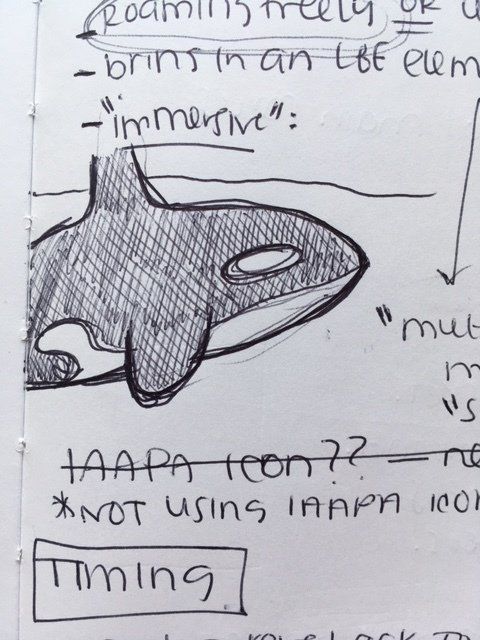 - Roaming freely OR
- brins in an LBE elem
- "immersive":
"mul
"s
IAAPA icon?? — ne
*NOT USING IAAPA ICO
TIMING